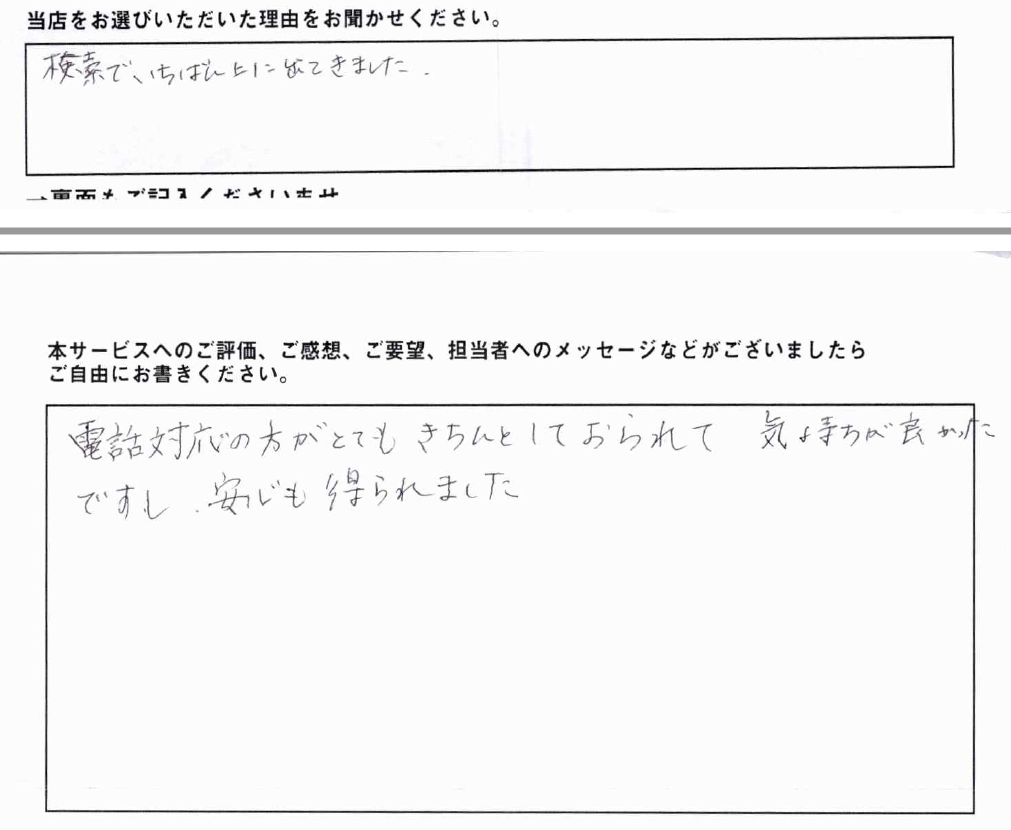 当店をお選びいただいた理由をお聞かせください。
検索で、いちばん上に出てきました.
→裏面もご記入くださいませ
本サービスへのご評価、ご感想、ご要望、担当者へのメッセージなどがございましたら
ご自由にお書きください。
電話対応の方がとてもきちんとしておられて 気持ちが良かった
ですし、安心も得られました